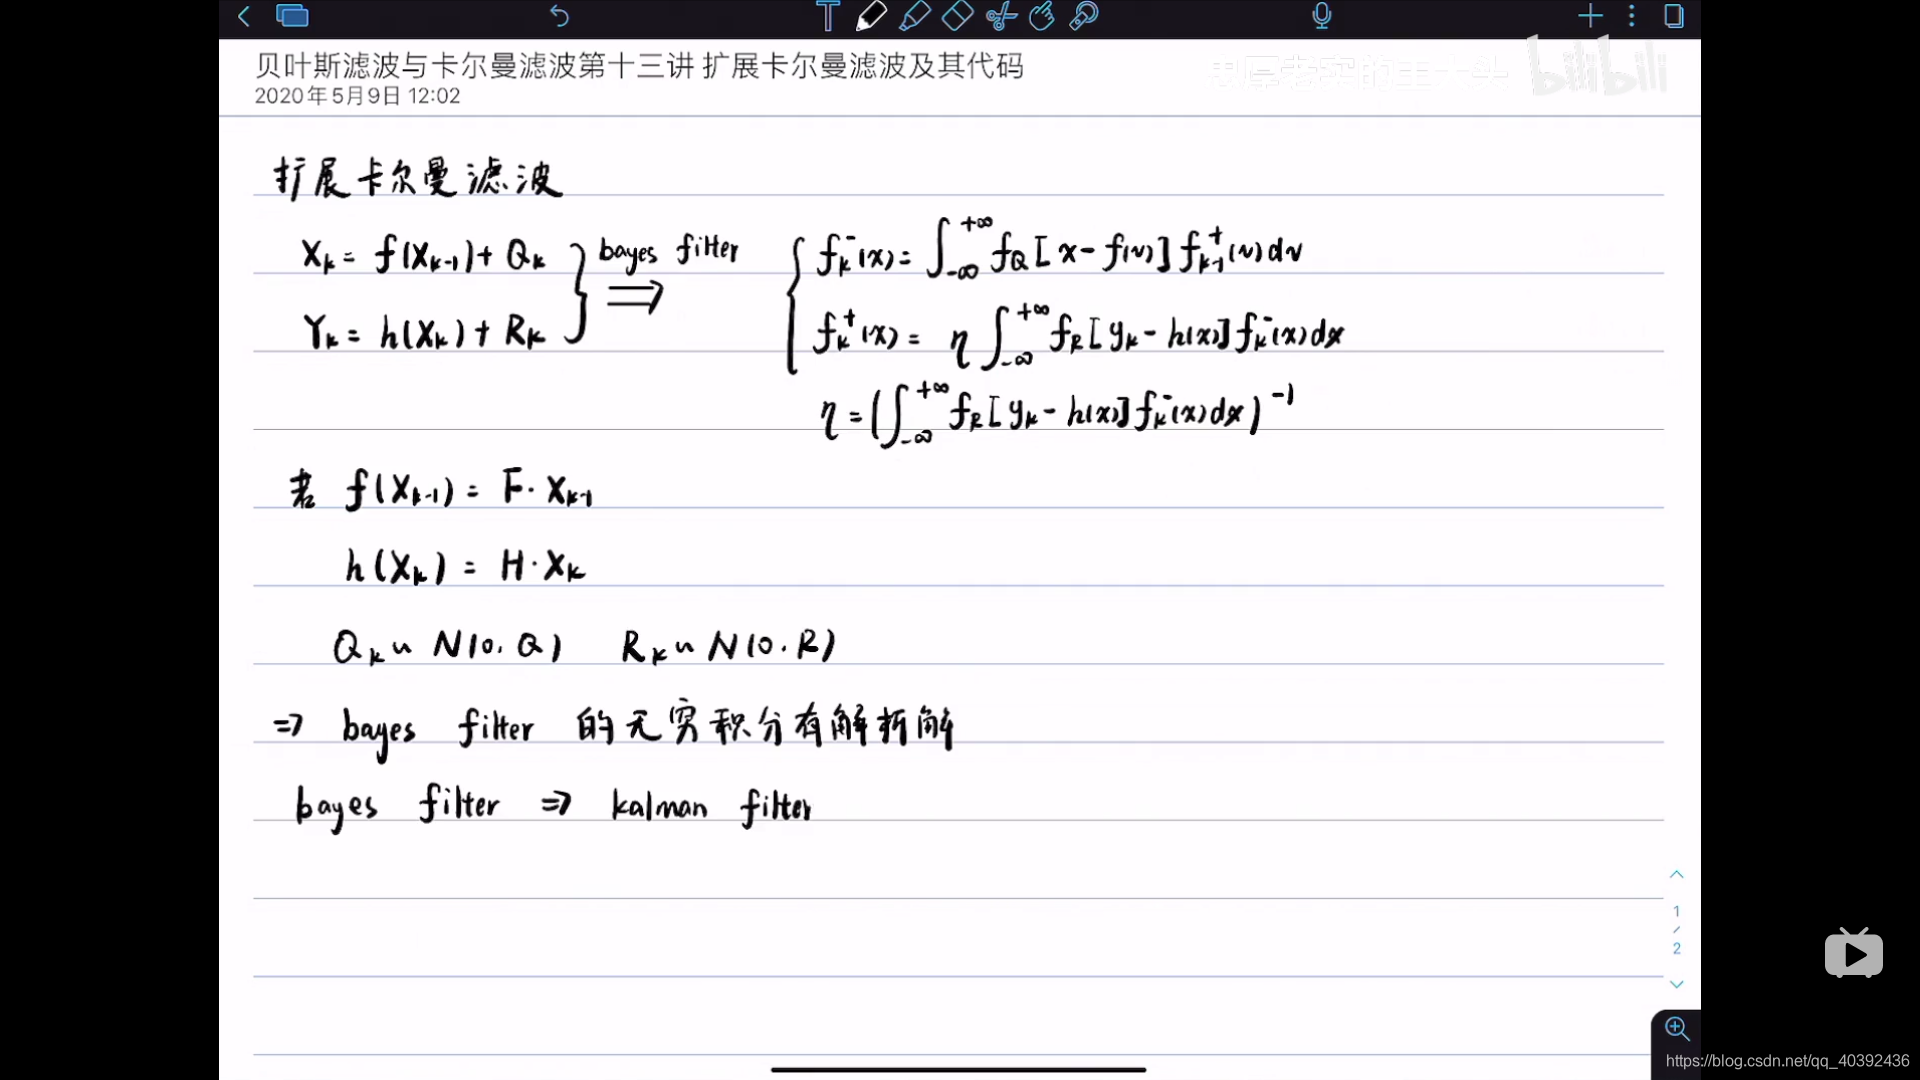 贝叶斯滤波与卡尔曼滤波第十三讲 扩展卡尔曼滤波及其代码
2020年5月9日 12:02
忠厚老实的王大头
bilibili
扩展卡尔曼滤波
X_k = f(X_{k-1}) + Q_k
Y_k = h(X_k) + R_k
} bayes filter ⟹
{ f_k^-(x) = ∫_{-∞}^{+∞} f_Q[x - f(v)] f_{k-1}^+(v)dv
f_k^+(x) = η ∫_{-∞}^{+∞} f_R[y_k - h(x)] f_k^-(x)dx
η = (∫_{-∞}^{+∞} f_R[y_k - h(x)] f_k^-(x)dx)^{-1}
若 f(X_{k-1}) = F·X_{k-1}
h(X_k) = H·X_k
Q_k ~ N(0, Q) R_k ~ N(0, R)
⇒ bayes filter 的无穷积分有解析解
bayes filter ⇒ kalman filter
1
/
2
https://blog.csdn.net/qq_40392436